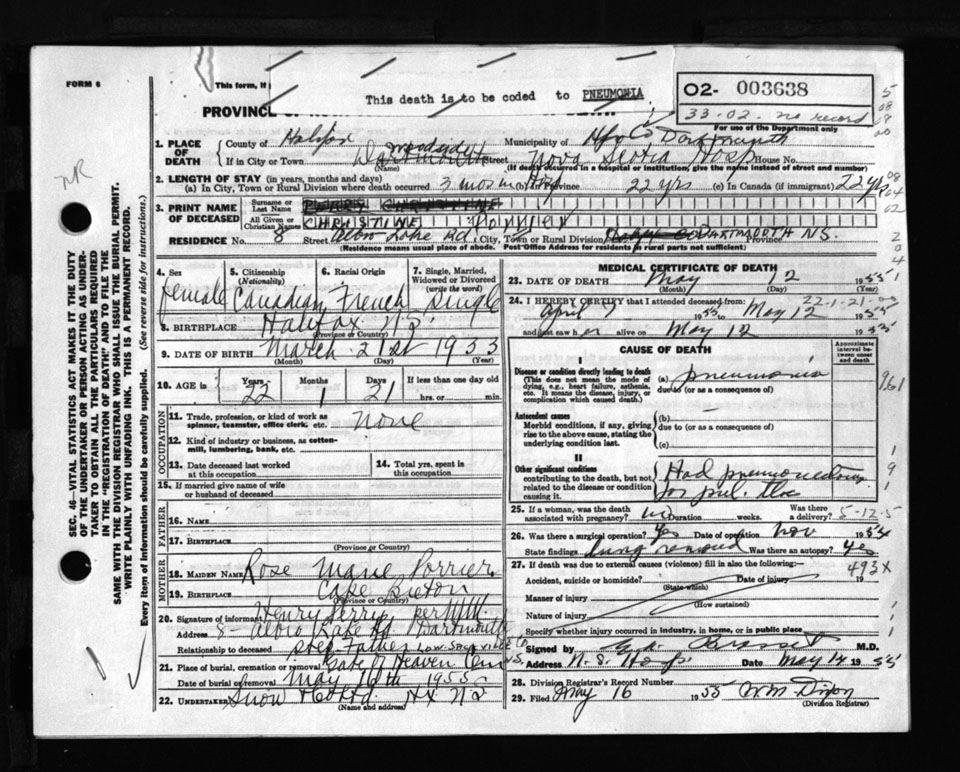 FORM 6
This form, if
This death is to be coded to PNEUMONIA
O2- 003638
33-02. no record
For use of the Department only
PROVINC
1. PLACE OF DEATH
County of Halifax Municipality of Hfx Co Dartmouth
If in City or Town Dartmouth Woodside Street Nova Scotia Hosp House No.
(Name) (If death occurred in a hospital or institution, give the name instead of street and number)
2. LENGTH OF STAY (in years, months and days)
(a) In City, Town or Rural Division where death occurred 3 mos (b) In Province 22 yrs (c) In Canada (if immigrant) 22 yrs
3. PRINT NAME OF DECEASED
Surname or Last Name
All Given or Christian Names CHRISTINE
RESIDENCE No. 8 Street Albro Lake Rd, City, Town or Rural Division DARTMOUTH Province N.S.
(Residence means usual place of abode. Post Office Address for residents in rural parts not sufficient)
4. Sex female
5. Citizenship (Nationality) Canadian
6. Racial Origin French
7. Single, Married, Widowed or Divorced (write the word) Single
8. BIRTHPLACE Halifax NS.
(Province or Country)
9. DATE OF BIRTH March 21st 1933
(Month) (Day) (Year)
10. AGE in Years 22 Months 1 Days 21 If less than one day old hrs. or min.
OCCUPATION
11. Trade, profession or kind of work as spinner, teamster, office clerk, etc. None
12. Kind of industry or business, as cotton-mill, lumbering, bank, etc.
13. Date deceased last worked at this occupation
14. Total yrs. spent in this occupation
15. If married give name of wife or husband of deceased
FATHER
16. NAME
17. BIRTHPLACE
(Province or Country)
MOTHER
18. MAIDEN NAME Rose Marie Porrier
19. BIRTHPLACE Cape Breton
(Province or Country)
20. Signature of informant Henry Perry per
Address 8- Albro Lake Rd. Dartmouth
Relationship to deceased step Father
21. Place of burial, cremation or removal Gate of Heaven Cem LOW. SACKVILLE N.S.
Date of burial or removal May 16th 1955
22. UNDERTAKER Snow Co Ltd Hx NS
(Name and address)
MEDICAL CERTIFICATE OF DEATH
23. DATE OF DEATH May 12 1955
(Month) (Day) (Year)
22-1-21-00
24. I HEREBY CERTIFY that I attended deceased from: April 9 1955 to May 12 1955
and last saw her alive on May 12 1955
CAUSE OF DEATH
Approximate interval between onset and death
I
Disease or condition directly leading to death
(This does not mean the mode of dying, e.g., heart failure, asthenia, etc. It means the disease, injury, or complication which caused death.)
(a) pneumonia
due to (or as a consequence of)
Antecedent causes
Morbid conditions, if any, giving rise to the above cause, stating the underlying condition last.
(b) —
due to (or as a consequence of)
(c)
II
Other significant conditions
contributing to the death, but not related to the disease or condition causing it.
Had pneumonectomy for pul. tbc
25. If a woman, was the death associated with pregnancy? no Duration weeks. Was there a delivery?
5-12-5
26. Was there a surgical operation? Yes Date of operation Nov 1954
State findings lung removed Was there an autopsy? Yes
27. If death was due to external causes (violence) fill in also the following:—
493X
Accident, suicide or homicide? Date of injury 19
(State which)
Manner of injury
(How sustained)
Nature of injury
Specify whether injury occurred in industry, in home, or in public place
Signed by M.D.
Address N. S. Hosp Date May 14 1955
28. Division Registrar's Record Number
29. Filed May 16 1955 Wm. Dixon
(Division Registrar)
SEC. 46—VITAL STATISTICS ACT MAKES IT THE DUTY
OF THE UNDERTAKER OR PERSON ACTING AS UNDER-
TAKER TO OBTAIN ALL THE PARTICULARS REQUIRED
IN THE "REGISTRATION OF DEATH" AND TO FILE THE
SAME WITH THE DIVISION REGISTRAR WHO SHALL ISSUE THE BURIAL PERMIT.
WRITE PLAINLY WITH UNFADING INK. THIS IS A PERMANENT RECORD.
Every item of information should be carefully supplied. (See reverse side for instructions.)
NR